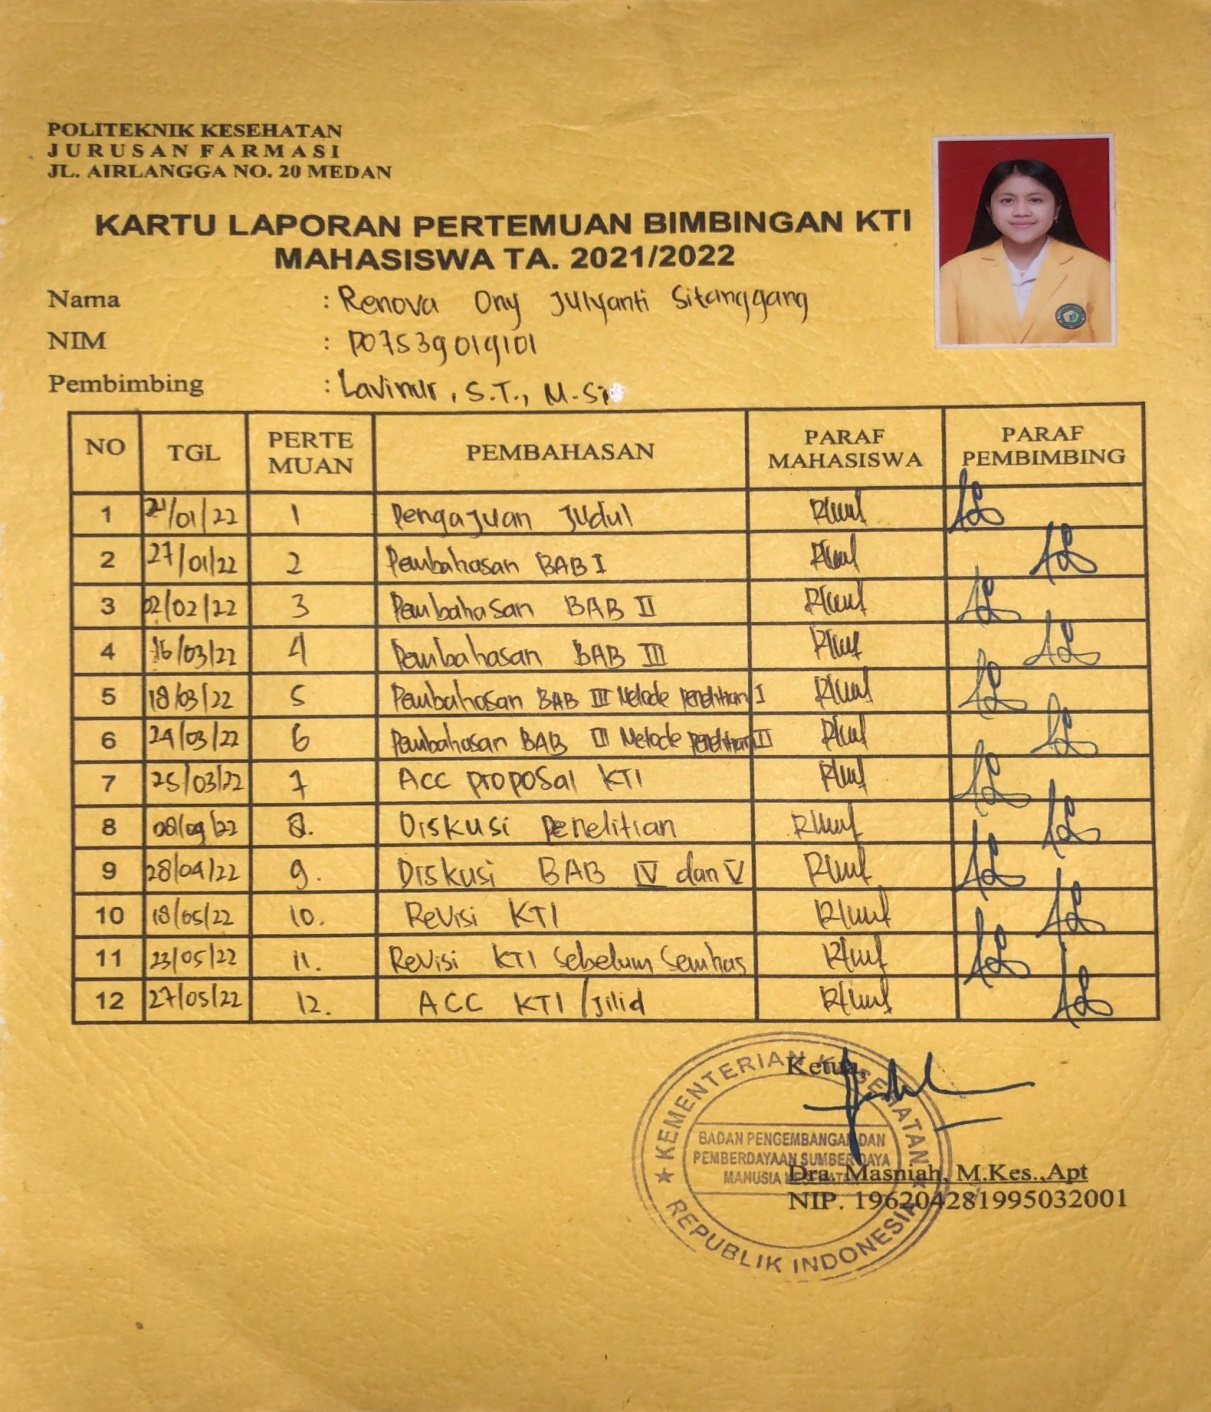 POLITEKNIK KESEHATAN
JURUSAN FARMASI
JL. AIRLANGGA NO. 20 MEDAN
KARTU LAPORAN PERTEMUAN BIMBINGAN KTI
MAHASISWA TA. 2021/2022
Nama : Renova Ony Julyanti Sitanggang
NIM : P07539019101
Pembimbing : Lavinur, S.T., M.Si
NO TGL PERTE MUAN PEMBAHASAN PARAF MAHASISWA PARAF PEMBIMBING
1 21/01/22 1 Pengajuan Judul
2 27/01/22 2 Pembahasan BAB I
3 02/02/22 3 Pembahasan BAB II
4 16/03/22 4 Pembahasan BAB III
5 18/03/22 5 Pembahasan BAB III Metode Penelitian I
6 24/03/22 6 Pembahasan BAB III Metode Penelitian II
7 25/03/22 7 Acc proposal KTI
8 8. Diskusi Penelitian
9 28/04/22 9. Diskusi BAB IV dan V
10 18/05/22 10. Revisi KTI
11 23/05/22 11. Revisi KTI Sebelum Semhas
12 27/05/22 12. ACC KTI /Jilid
Ketua,
KEMENTERIAN KESEHATAN
BADAN PENGEMBANGAN DAN
PEMBERDAYAAN SUMBER DAYA
MANUSIA KESEHATAN
REPUBLIK INDONESIA
Dra. Masniah, M.Kes.,Apt
NIP. 196204281995032001